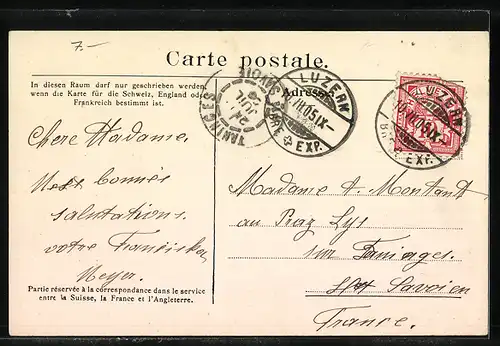 7.-
Carte postale.
In diesen Raum darf nur geschrieben werden,
wenn die Karte für die Schweiz, England oder
Frankreich bestimmt ist.
Adresse
TANINGES
SAVOIE
LUZERN
VII.05 IX-
EXP.
LUZERN
VII.05 IX-
EXP.
Chère Madame,
bonnes
salutations.
votre Franziska
Meyer.
Madame A. Montant
au Praz Lys
sur Taninges.
Savoien
France.
Partie réservée à la correspondance dans le service
entre la Suisse, la France et l'Angleterre.